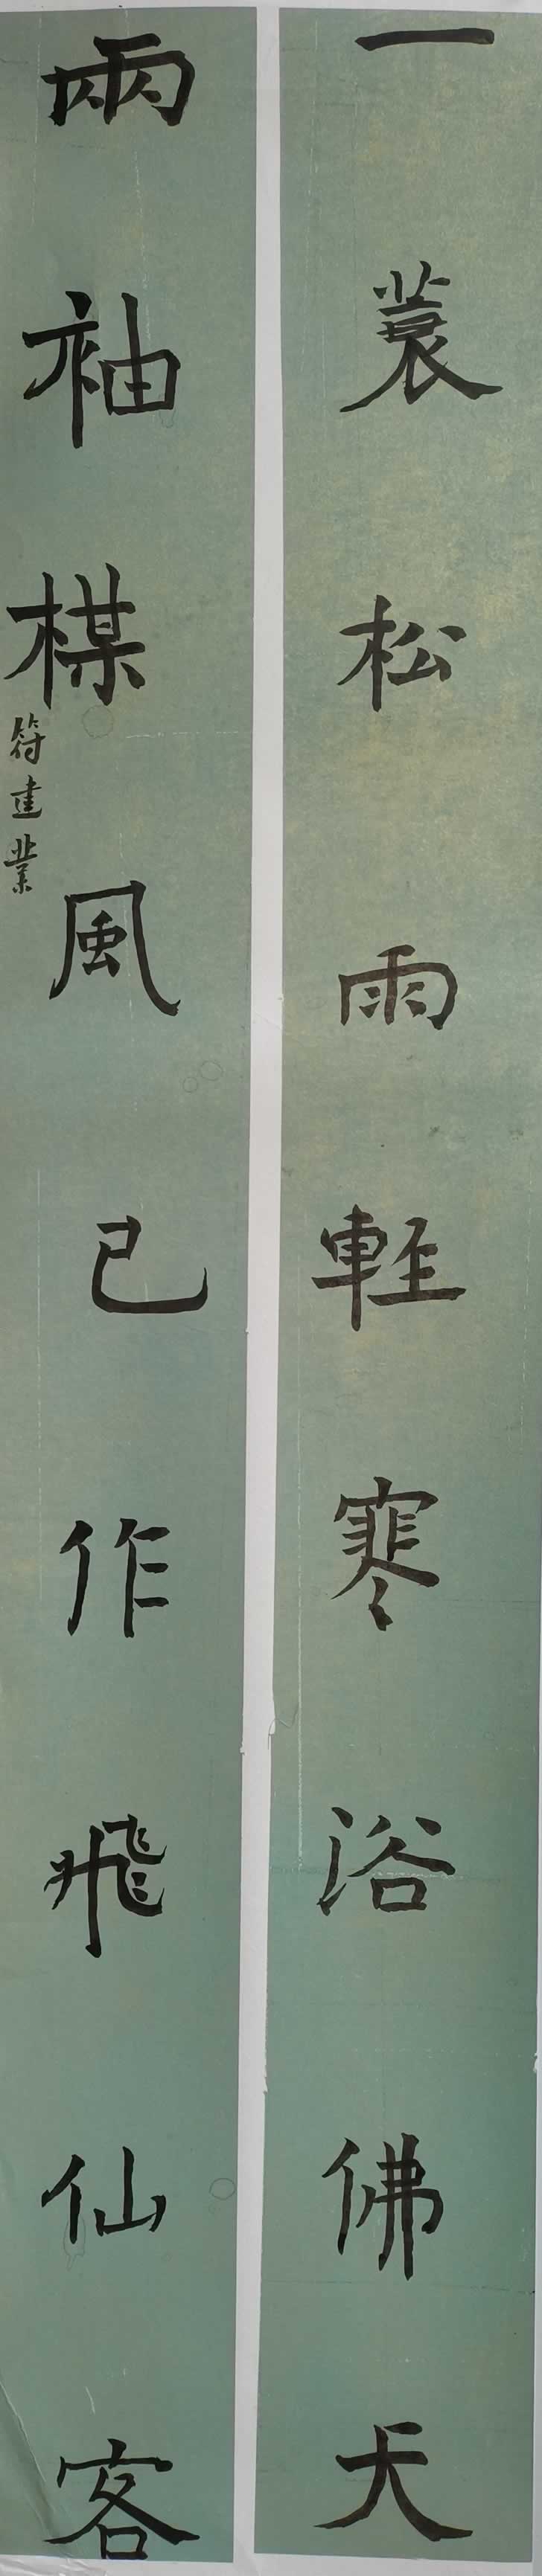 一蓑松雨輕寒浴佛天
兩袖楳風已作飛仙客
符建業